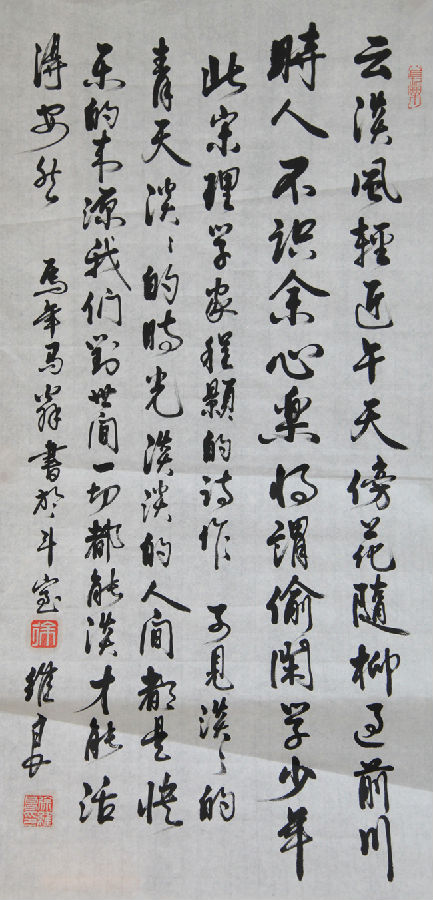 云淡風輕近午天傍花隨柳过前川
時人不识余心楽将謂偷闲学少年
此宋理学家程顥的诗作 可見淡〻的
青天淡〻的時光淡淡的人间都是快
乐的来源我们對世间一切都能淡才能活
得安然 馬年马翁書於斗室 維
徐